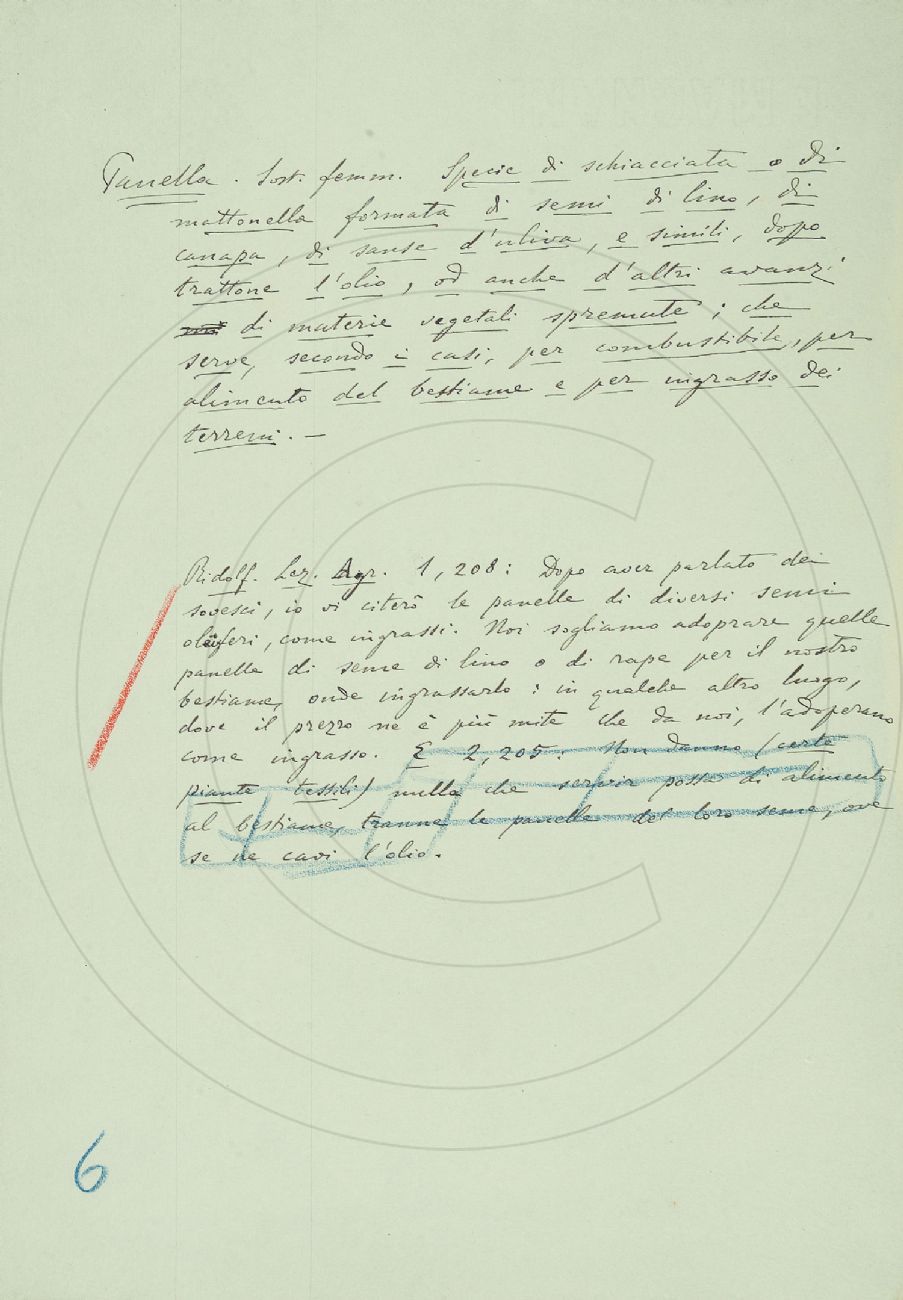 Panella. Sost. femm. Specie di schiacciata o di
mattonella formata di semi di lino, di
canapa, di sanse d'uliva, e simili, dopo
trattone l'olio, od anche d'altri avanzi
di materie vegetali spremute; che
serve, secondo i casi, per combustibile, per
alimento del bestiame e per ingrasso dei
terreni. —
Ridolf. Lez. Agr. 1, 208: Dopo aver parlato dei
sovesci, io vi citerò le panelle di diversi semi
oleiferi, come ingrassi. Noi sogliamo adoprare quelle
panelle di seme di lino o di rapa per il nostro
bestiame, onde ingrassarlo: in qualche altro luogo,
dove il prezzo ne è più mite che da noi, l'adoperano
come ingrasso. E 2, 205: Non danno (certe
piante tessili) nulla che servir possa di alimento
al bestiame, tranne le panelle del loro seme, ove
se ne cavi l'olio.
6